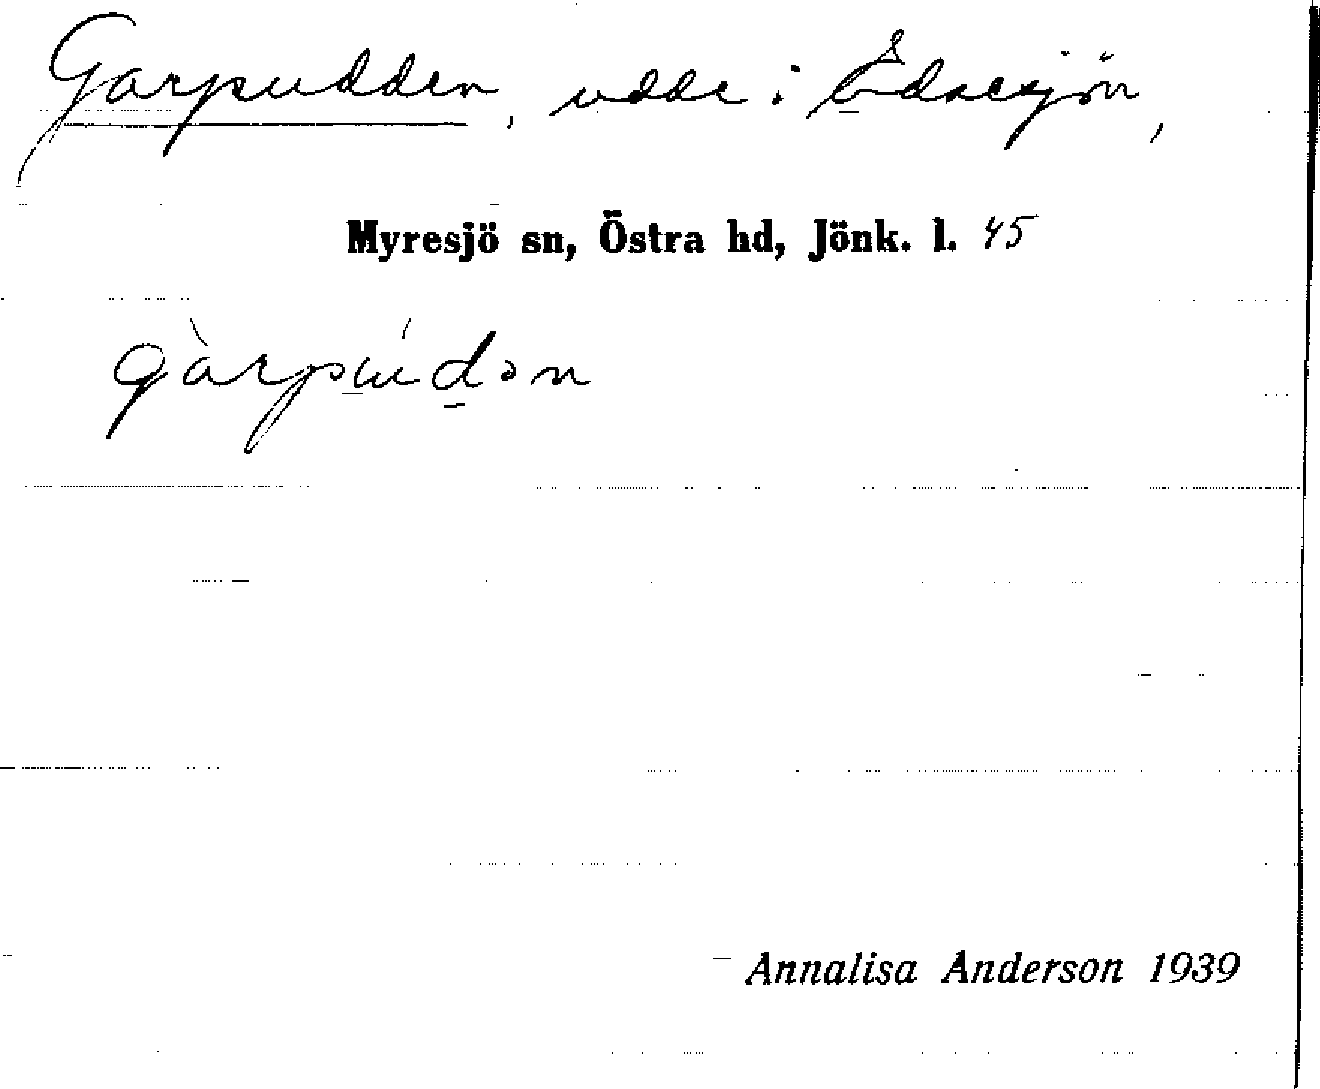 Garpudden, udde i Ednesjön,
Myresjö sn, Östra hd, Jönk. l. 45
gàrpúdən
Annalisa Anderson 1939